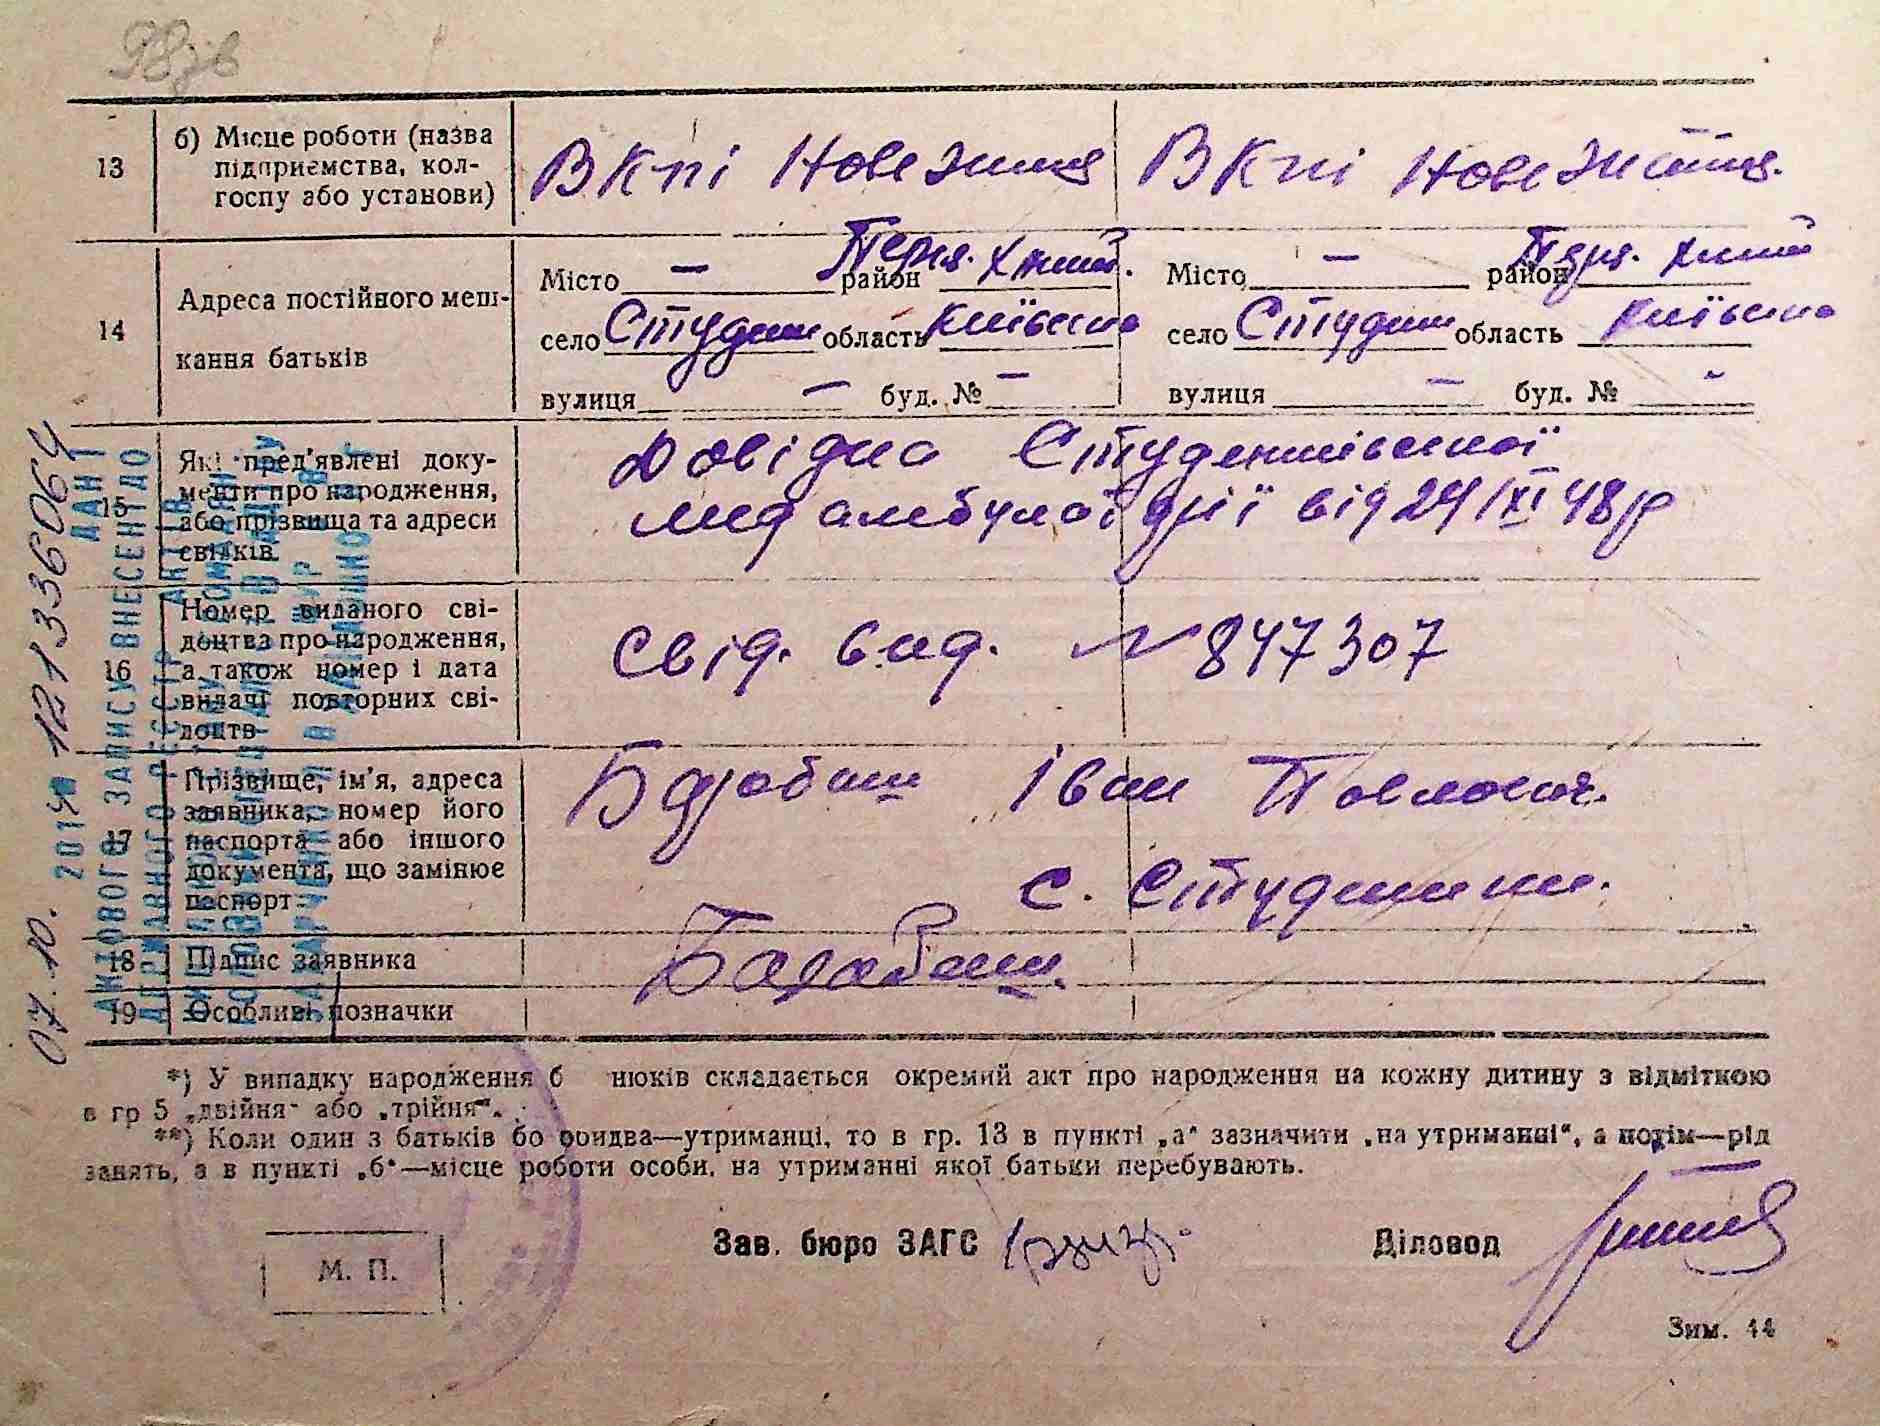 13
б) Місце роботи (назва
підприємства, кол-
госпу або установи)
В Кпі Нове Життя
В Кпі Нове Життя.
14
Адреса постійного меш-
кання батьків
Місто — район Пер. Хмий.
село Студ область Київська
вулиця — буд. № —
Місто — район Пер. Хмий
село Студ область Київська
вулиця — буд. № -
15
Які пред'явлені доку-
менти про народження,
або прізвища та адреси
свідків.
Довідка Студениківської
мед амбулаторії від 24/XI 48 р
16
Номер виданого сві-
доцтва про народження,
а також номер і дата
видачі повторних сві-
доцтв
Свід. вид. № 847307
17
Прізвище, ім'я, адреса
заявника, номер його
паспорта або іншого
документа, що замінює
паспорт
Барабаш Іван Павлович.
с. Студеники.
18
Підпис заявника
Барабаш.
19
Особливі позначки
07. 10. 2014 12133606
ДАНІ
АКТОВОГО ЗАПИСУ ВНЕСЕНІ ДО
ДЕРЖАВНОГО РЕЄСТР АКТІВ
*) У випадку народження б нюків складається окремий акт про народження на кожну дитину з відміткою
в гр 5 „двійня" або „трійня".
**) Коли один з батьків бо оидва—утриманці, то в гр. 13 в пункті „а" зазначити „на утриманні", а потім—рід
занять, а в пункті „б"—місце роботи особи, на утриманні якої батьки перебувають.
М. П.
Зав. бюро ЗАГС
Діловод
Зим. 44